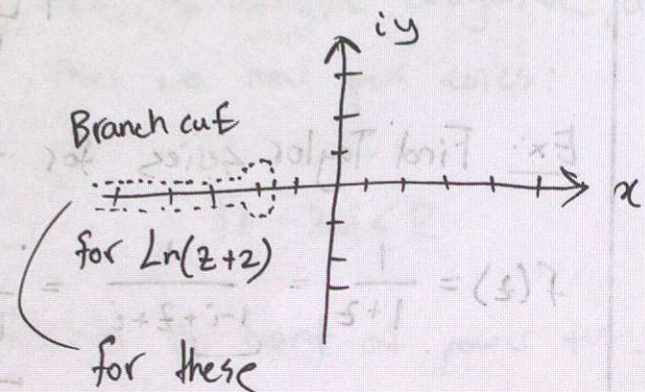 iy
Branch cut
x
for Ln(z+2)
for these